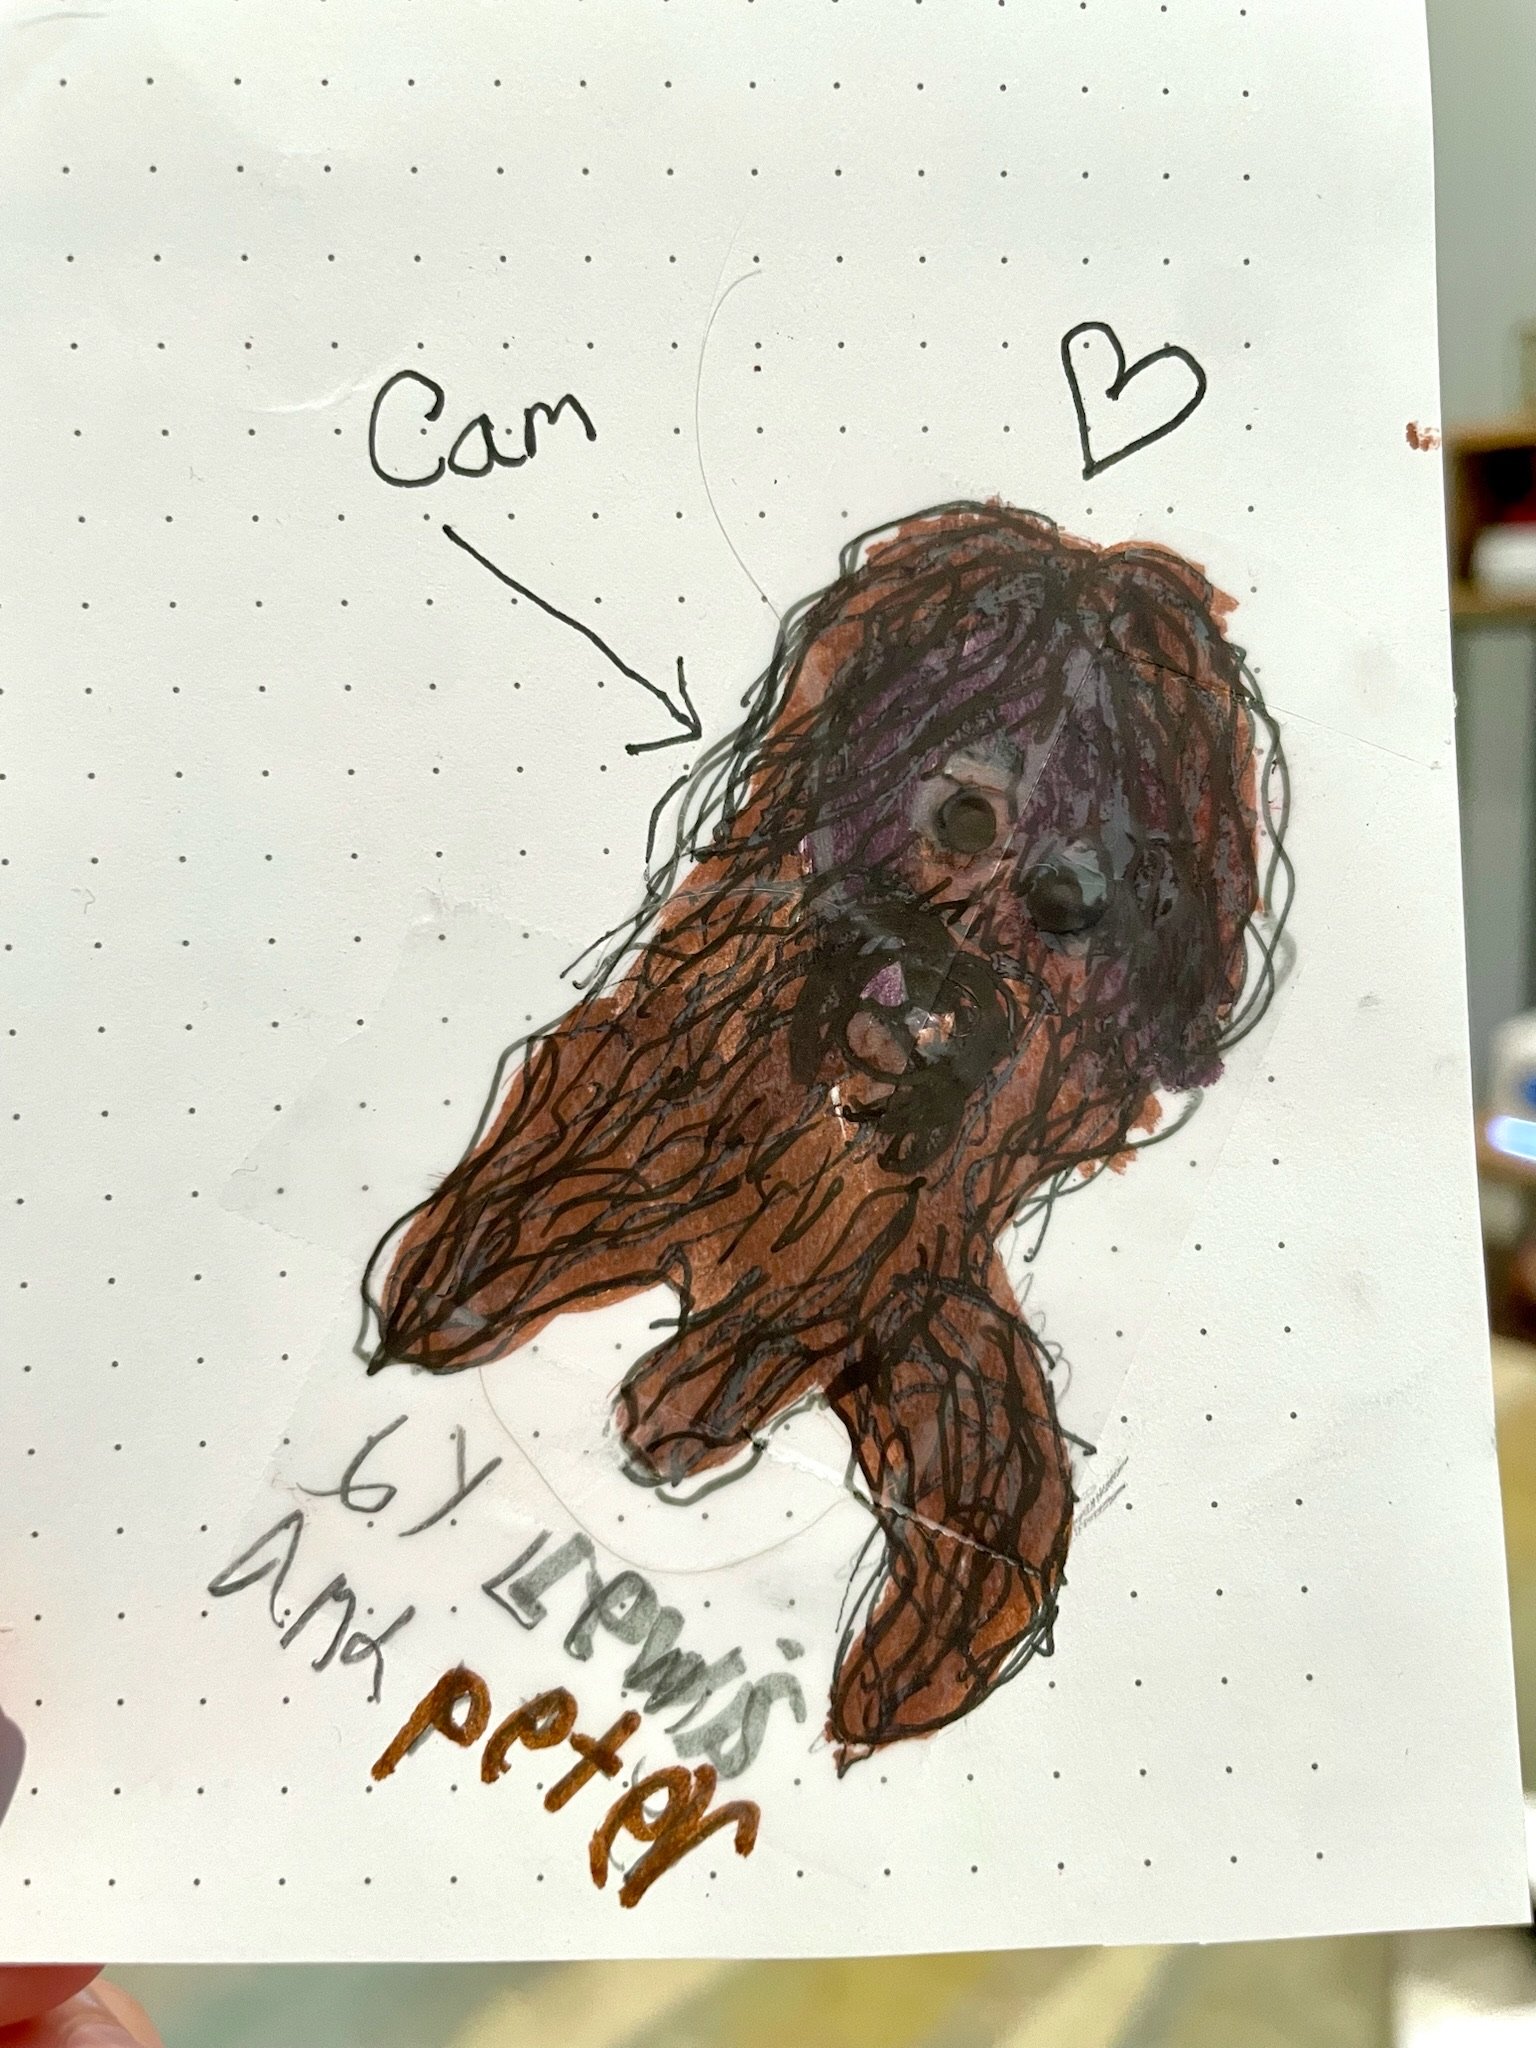 Cam
by Lewis
and peter